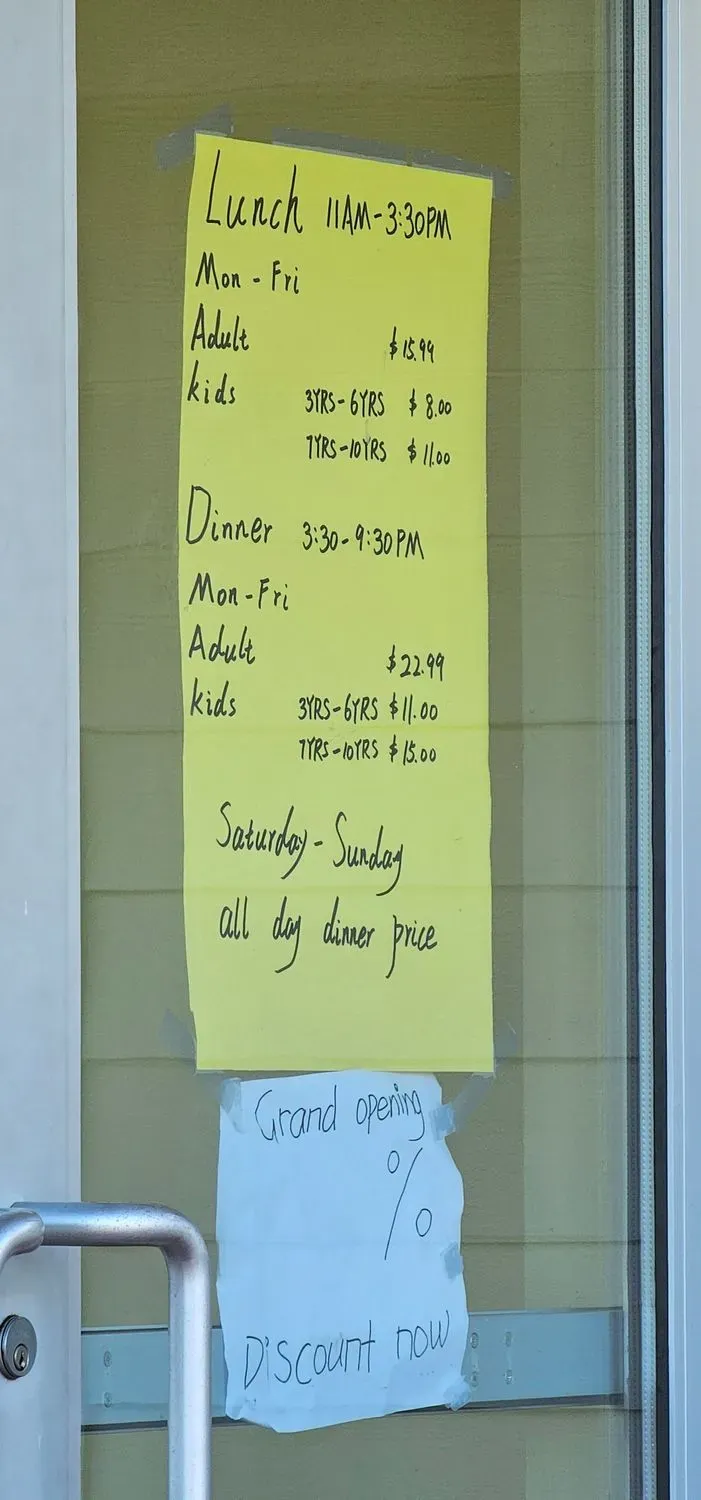 Lunch 11AM-3:30PM
Mon - Fri
Adult $15.99
kids 3YRS-6YRS $8.00
7YRS-10YRS $11.00
Dinner 3:30-9:30PM
Mon-Fri
Adult $22.99
kids 3YRS-6YRS $11.00
7YRS-10YRS $15.00
Saturday-Sunday
all day dinner price
Grand opening
%
Discount now